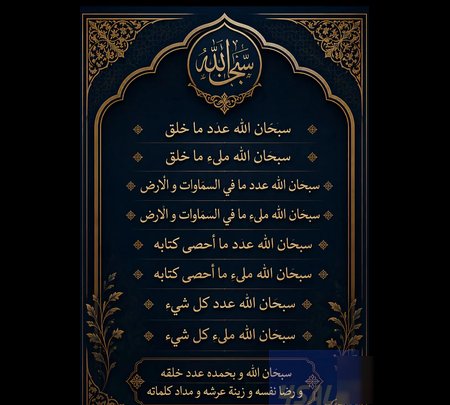 سبحان الله
سبحان الله عدد ما خلق
سبحان الله ملء ما خلق
سبحان الله عدد ما في السماوات و الأرض
سبحان الله ملء ما في السماوات و الأرض
سبحان الله عدد ما أحصى كتابه
سبحان الله ملء ما أحصى كتابه
سبحان الله عدد كل شيء
سبحان الله ملء كل شيء
سبحان الله و بحمده عدد خلقه
و رضا نفسه و زينة عرشه و مداد كلماته